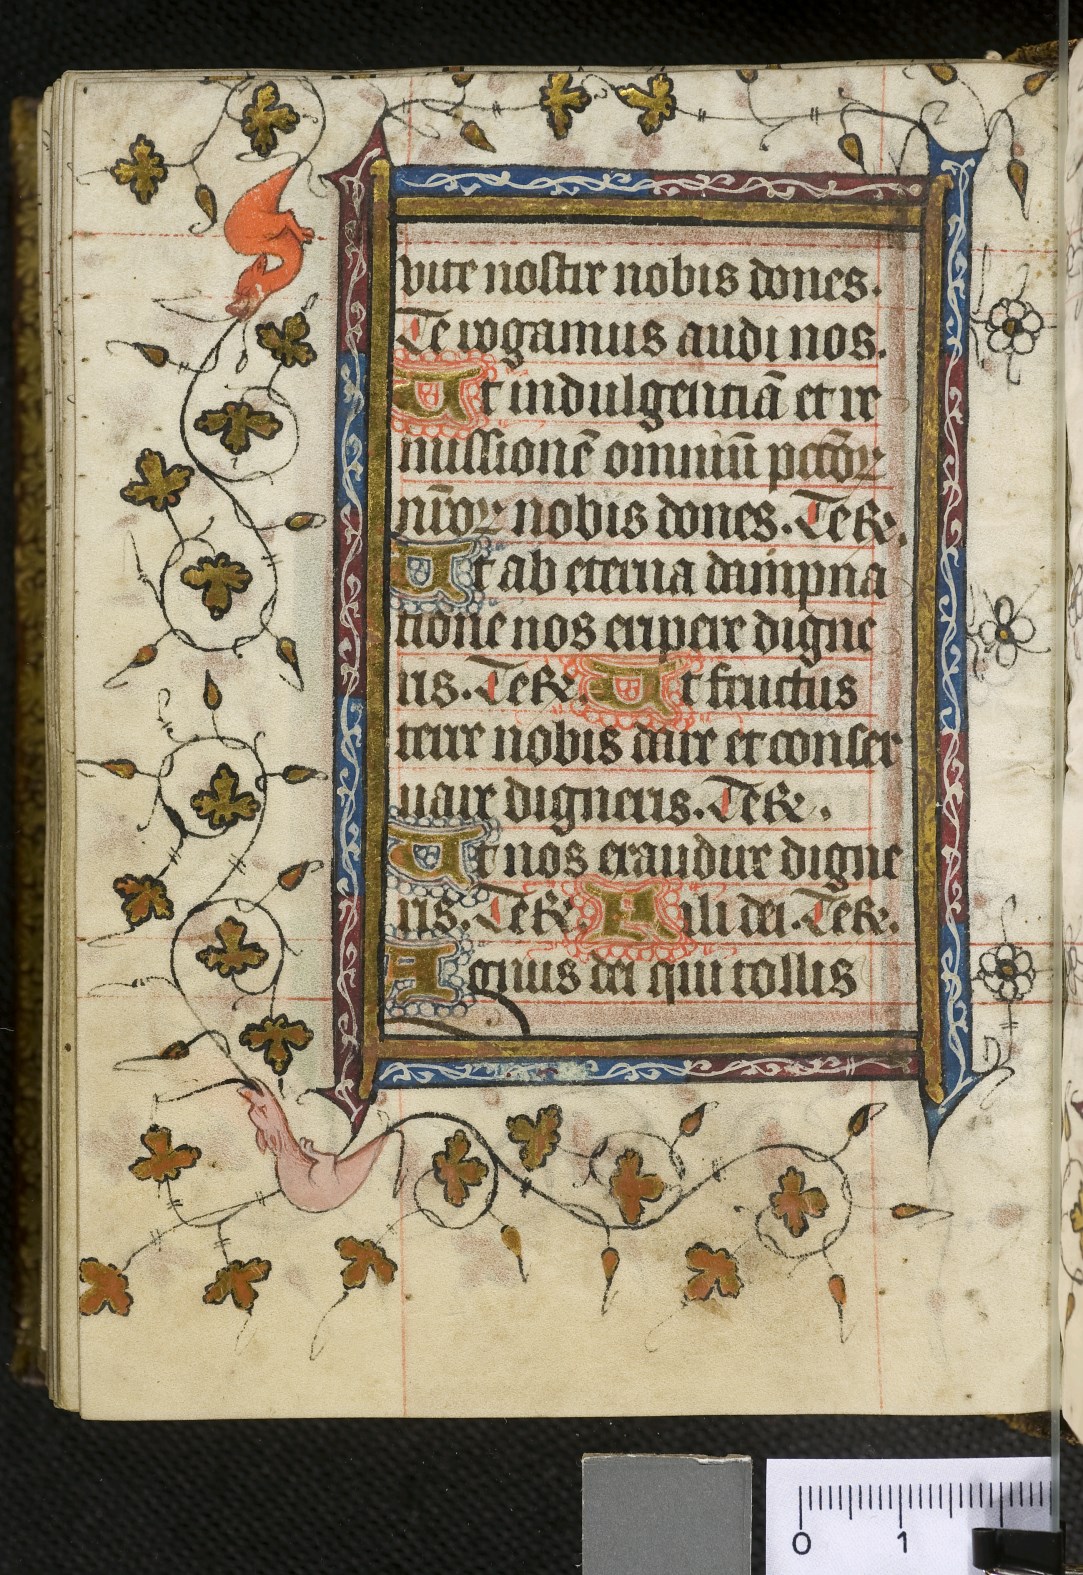 vite nostre nobis dones.
Te rogamus audi nos.
Ut indulgentiā et re
missionē omniū pctōꝝ
nr̄oꝝ nobis dones. Te R.
Ut ab eterna dampna
tione nos eripere digne
ris. Te R. Ut fructus
terre nobis dare et conser
uare digneris. Te R.
Ut nos exaudire digne
ris. Te R. Fili dei. Te R.
Agnus dei qui tollis
0 1